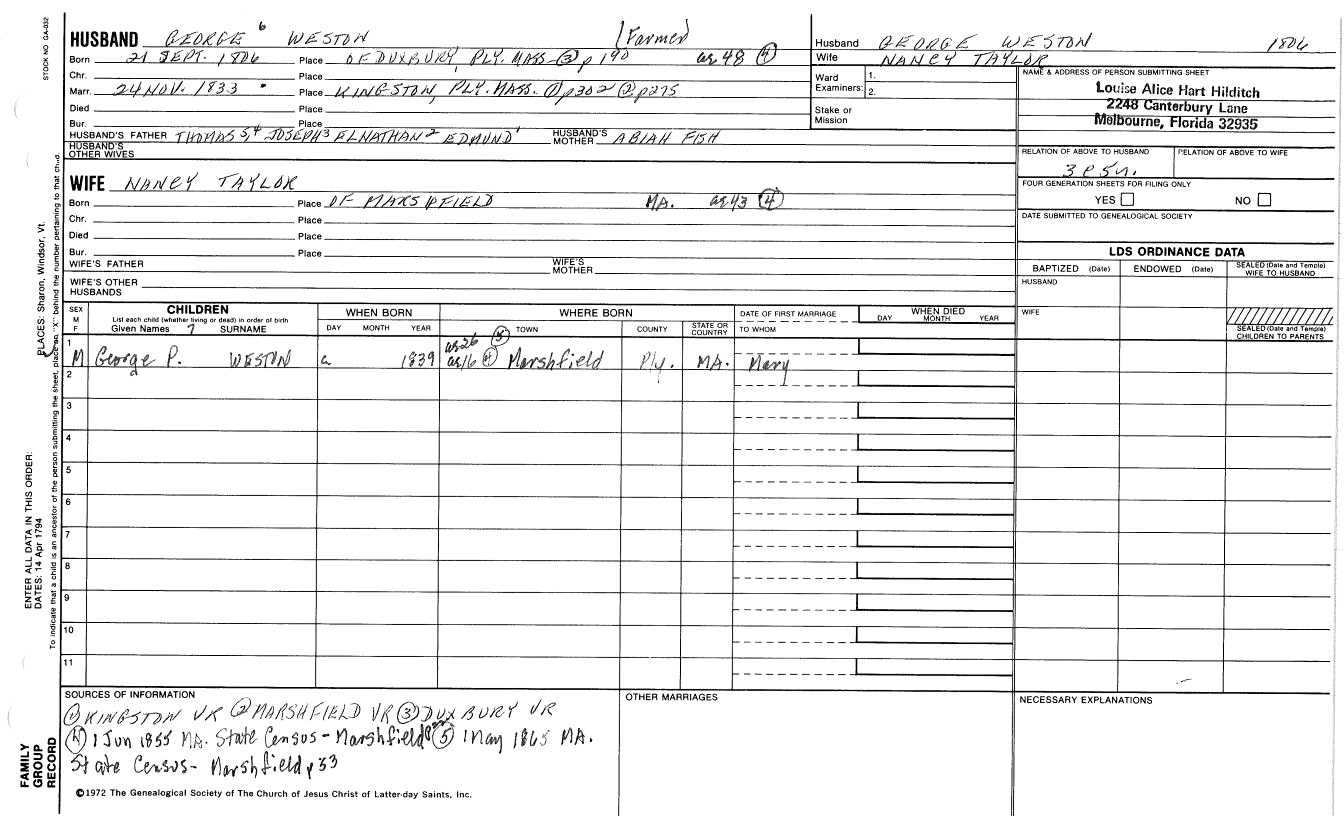 STOCK NO. GA-032
HUSBAND GEORGE 6 WESTON (Farmer)
Born 21 SEPT. 1806 Place OF DUXBURY, PLY. MASS-③ p 190 ae 48 ④
Chr. Place
Marr. 24 NOV. 1833 Place KINGSTON, PLY. MASS. ① p302 ② p275
Died Place
Bur. Place
HUSBAND'S FATHER THOMAS 5,4 JOSEPH 3 ELNATHAN 2 EDMUND 1 HUSBAND'S MOTHER ABIAH FISH
HUSBAND'S OTHER WIVES
WIFE NANCY TAYLOR
Born Place OF MARSHFIELD MA. ae 43 ④
Chr. Place
Died Place
Bur. Place
WIFE'S FATHER WIFE'S MOTHER
WIFE'S OTHER HUSBANDS
Husband GEORGE WESTON 1806
Wife NANCY TAYLOR
Ward Examiners: 1. 2.
Stake or Mission
NAME & ADDRESS OF PERSON SUBMITTING SHEET
Louise Alice Hart Hilditch
2248 Canterbury Lane
Melbourne, Florida 32935
RELATION OF ABOVE TO HUSBAND RELATION OF ABOVE TO WIFE
FOUR GENERATION SHEETS FOR FILING ONLY
YES NO
DATE SUBMITTED TO GENEALOGICAL SOCIETY
LDS ORDINANCE DATA
BAPTIZED (Date) ENDOWED (Date) SEALED (Date and Temple) WIFE TO HUSBAND
HUSBAND
WIFE
SEALED (Date and Temple) CHILDREN TO PARENTS
SEX M F
CHILDREN
List each child (whether living or dead) in order of birth
Given Names 7 SURNAME
WHEN BORN
DAY MONTH YEAR
WHERE BORN
TOWN COUNTY STATE OR COUNTRY
DATE OF FIRST MARRIAGE
TO WHOM
WHEN DIED
DAY MONTH YEAR
ae 26 ⑤
1 M George P. WESTON a 1839 ae 16 ④ Marshfield Ply. MA. Mary
2
3
4
5
6
7
8
9
10
11
SOURCES OF INFORMATION
① KINGSTON VR ② MARSHFIELD VR ③ DUXBURY VR
④ 1 Jun 1855 MA. State Census - Marshfield ⑤ 1 May 1865 MA.
State Census - Marshfield p 33
OTHER MARRIAGES
NECESSARY EXPLANATIONS
©1972 The Genealogical Society of The Church of Jesus Christ of Latter-day Saints, Inc.
FAMILY GROUP RECORD
ENTER ALL DATA IN THIS ORDER:
DATES: 14 Apr 1794
PLACES: Sharon, Windsor, Vt.
To indicate that a child is an ancestor of the person submitting the sheet, place an "X" behind the number pertaining to that child.